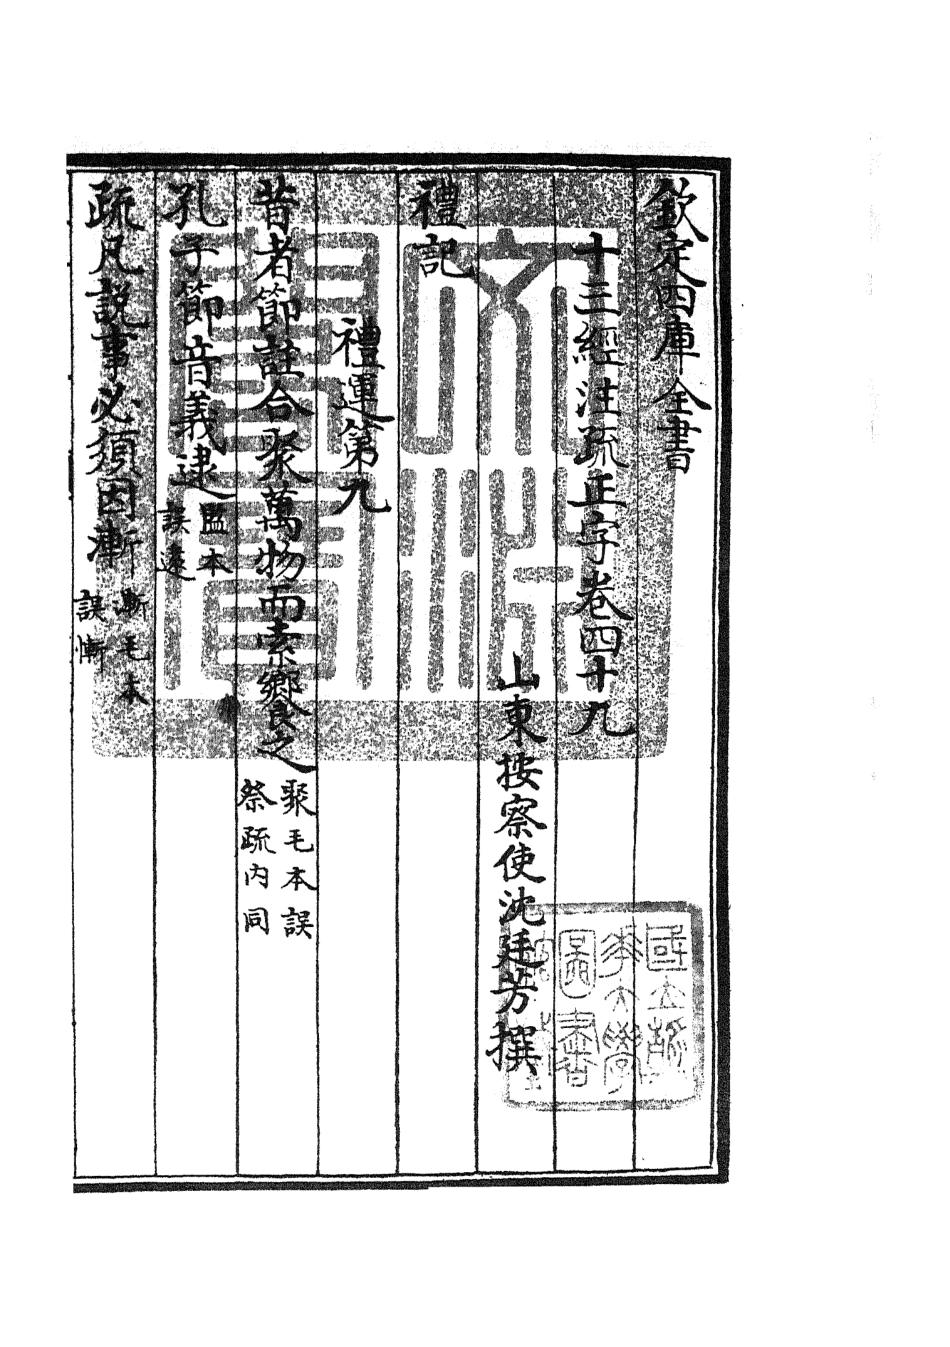 欽定四庫全書
十三經注疏正字卷四十九
山東按察使沈廷芳撰
禮記
禮運第九
昔者節註合聚萬物而索饗之聚毛本誤祭疏内同
孔子節音義逮監本誤遠
疏凡説事必須因漸漸毛本誤慚
文淵閣寳